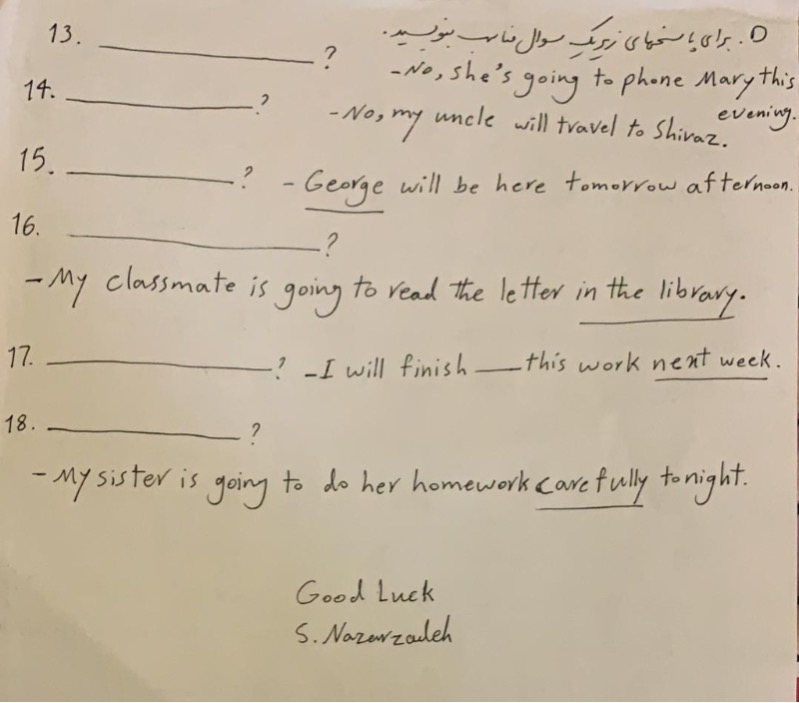 D. برای پاسخهای زیر یک سوال مناسب بنویسید.
13. ____________?
-No, she's going to phone Mary this evening.
14. ____________?
-No, my uncle will travel to Shiraz.
15. ____________? - George will be here tomorrow afternoon.
16. ____________?
-My classmate is going to read the letter in the library.
17. ____________? -I will finish ___ this work next week.
18. ____________?
-My sister is going to do her homework carefully tonight.
Good Luck
S. Nazarzadeh